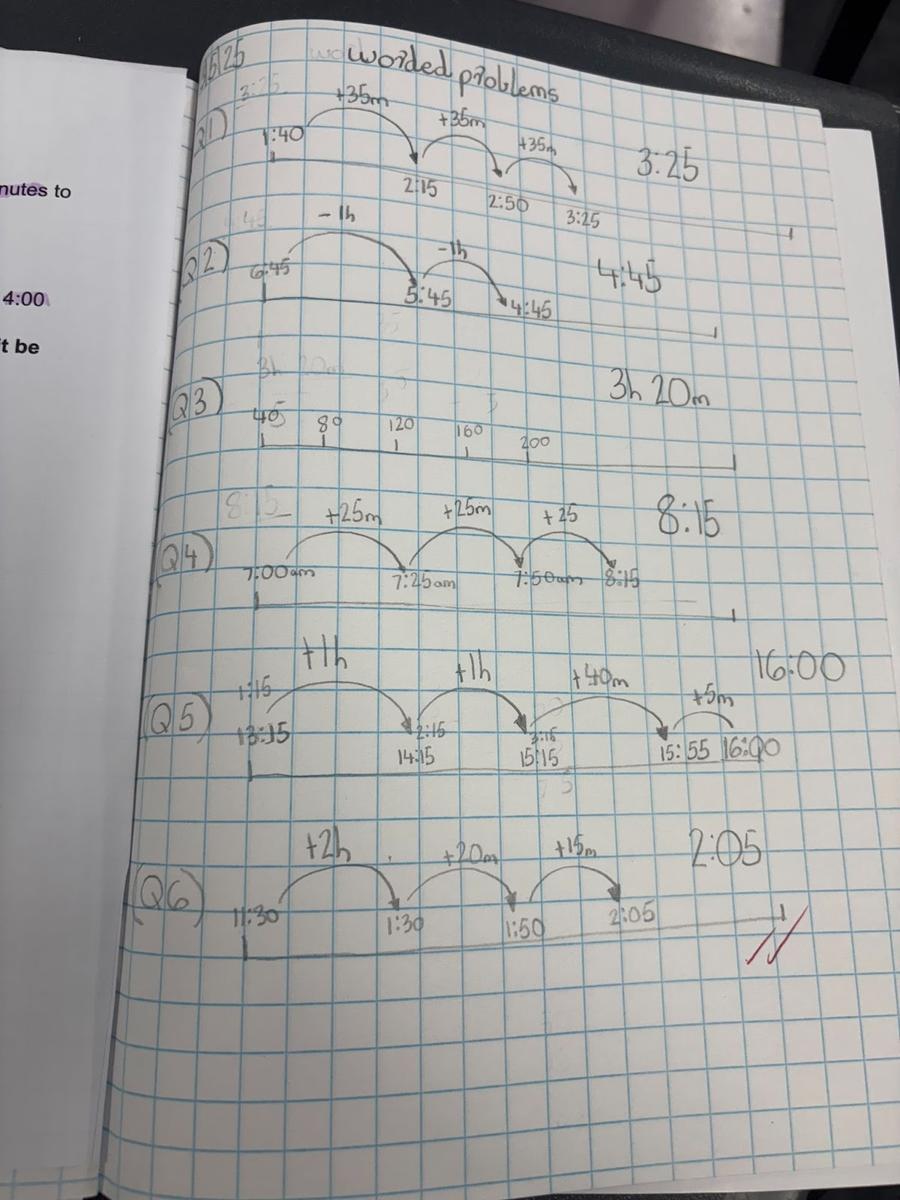 5/25
worded problems
nutes to
4:00
t be
3:25
Q1)
+35m +35m +35m
1:40 2:15 2:50 3:25
3:25
4:45
Q2)
-1h -1h
6:45 5:45 4:45
4:45
3h 20m
Q3)
40 80 120 160 200
3h 20m
8:15
Q4)
+25m +25m +25
7:00am 7:25am 7:50am 8:15
8:15
Q5)
+1h +1h +40m +5m
1:15 2:15 3:15
13:15 14:15 15:15 15:55 16:00
16:00
Q6)
+2h +20m +15m
11:30 1:30 1:50 2:05
2:05